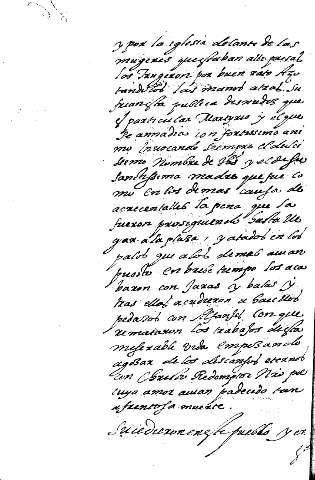 y por la iglesia delante de las
mugeres que estaban alli presas
los trugeron por buen rato Azo
tandolos las manos atras. Su
fuen esta publica desnudes que
el particular Martyrio y el que
se annadio con fortissimo ani
mo invocando siempre el dulci
ssimo Nombre de Xpo y el de su
santissima madre que fue co
mo en los demas causa de
acrecentalles la pena que la
fueron prosiguiendo hasta lle
gar a la plaza, y atados en los
palos que a los demas auian
puesto en breue tiempo los aca
baron con jaras y balas y
tras ellos acudieron a hacellos
pedazos con Alfanjes con que
remataron los trabajos desta
miserable vida empezando
a gozar de los descansos eternos
con Christo Redemptor Nro por
cuyo amor auian padecido tan
afrentosa muerte.
Sucedieron en este pueblo y en